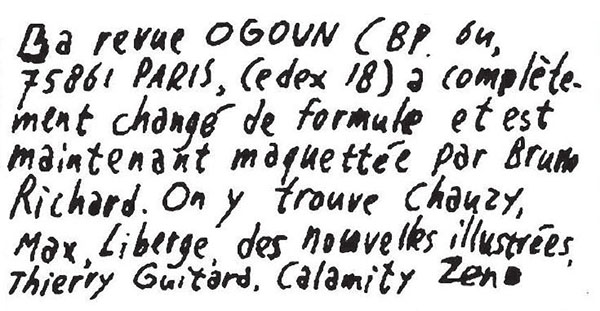 La revue OGOUN (BP. 64,
75861 PARIS, Cedex 18) a complète-
ment changé de formule et est
maintenant maquettée par Bruno
Richard. On y trouve Chauzy,
Max, Liberge, des nouvelles illustrées,
Thierry Guitard, Calamity Zeno